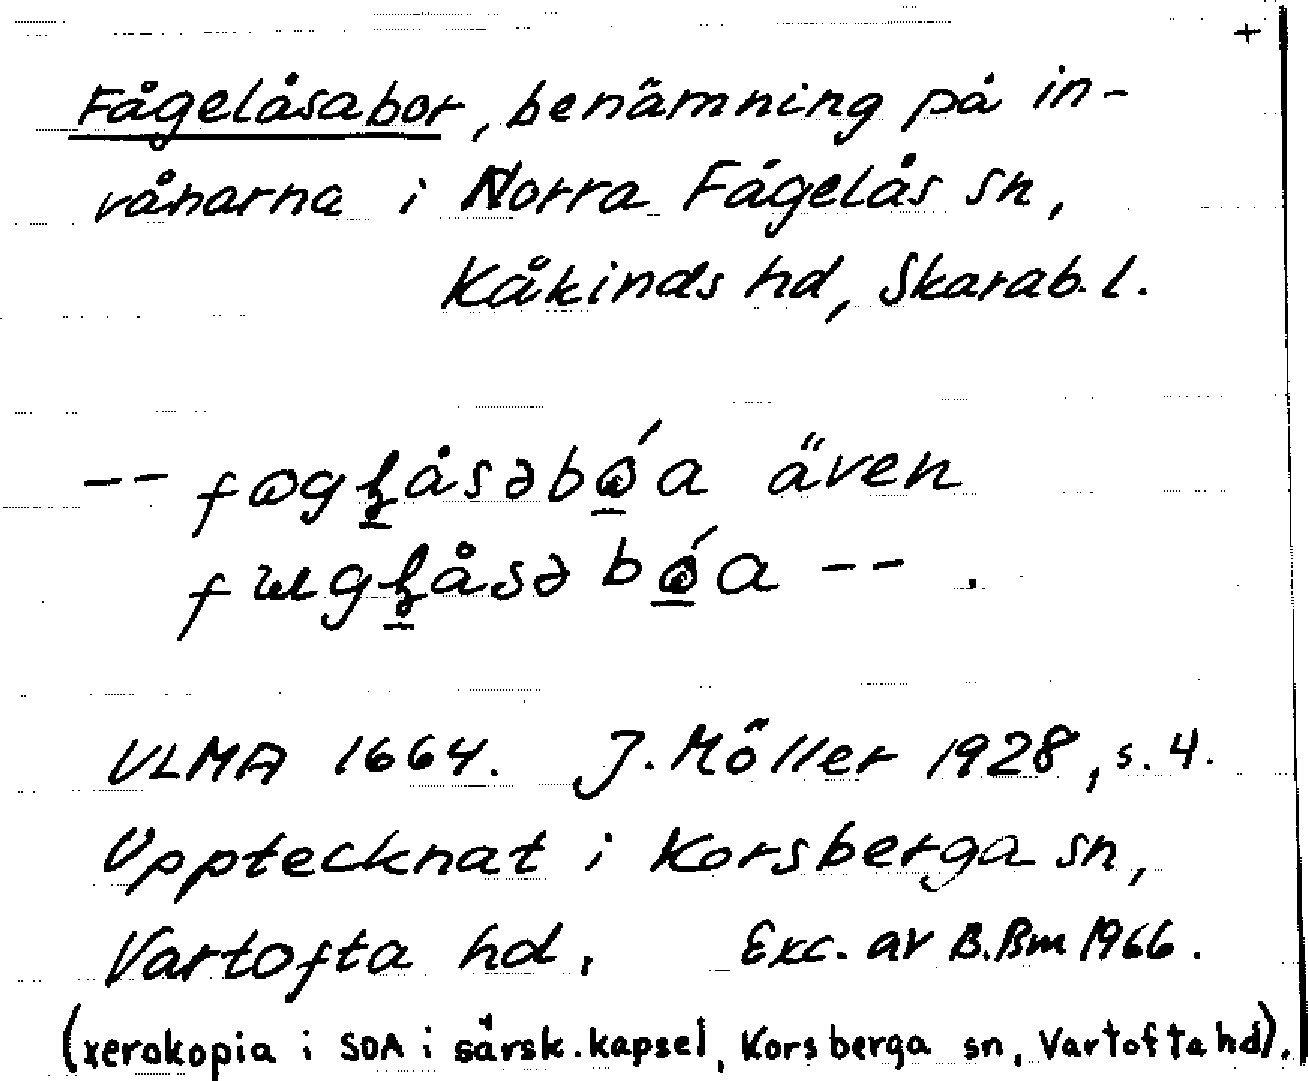 +
Fågelåsabor, benämning på in-
vånarna i Norra Fågelås sn,
Kåkinds hd, Skarab. l.
även
ULMA 1664. J. Möller 1928, s. 4.
Upptecknat i Korsberga sn,
Vartofta hd. Exc. av B.Bm 1966.
(xerokopia i SOA i särsk. kapsel, Korsberga sn, Vartofta hd).